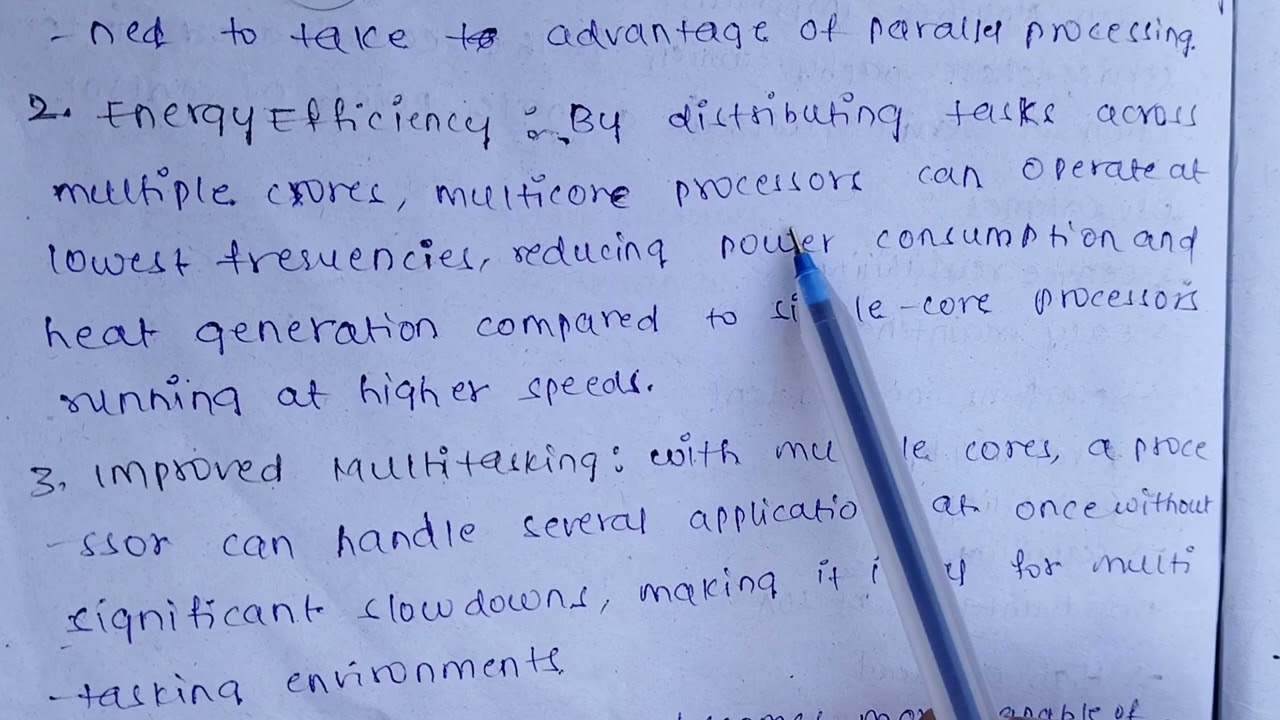 - ned to take to advantage of parallel processing.
2. Energy Efficiency :- By distributing tasks across
multiple cores, multicore processors can operate at
lowest fresuencies, reducing power consumption and
heat generation compared to si le-core processors
running at higher speeds.
3. Improved Multitasking: with mu le cores, a proce
-ssor can handle several applicatio at once without
significant slowdowns, making it i for multi
-tasking environments.
of